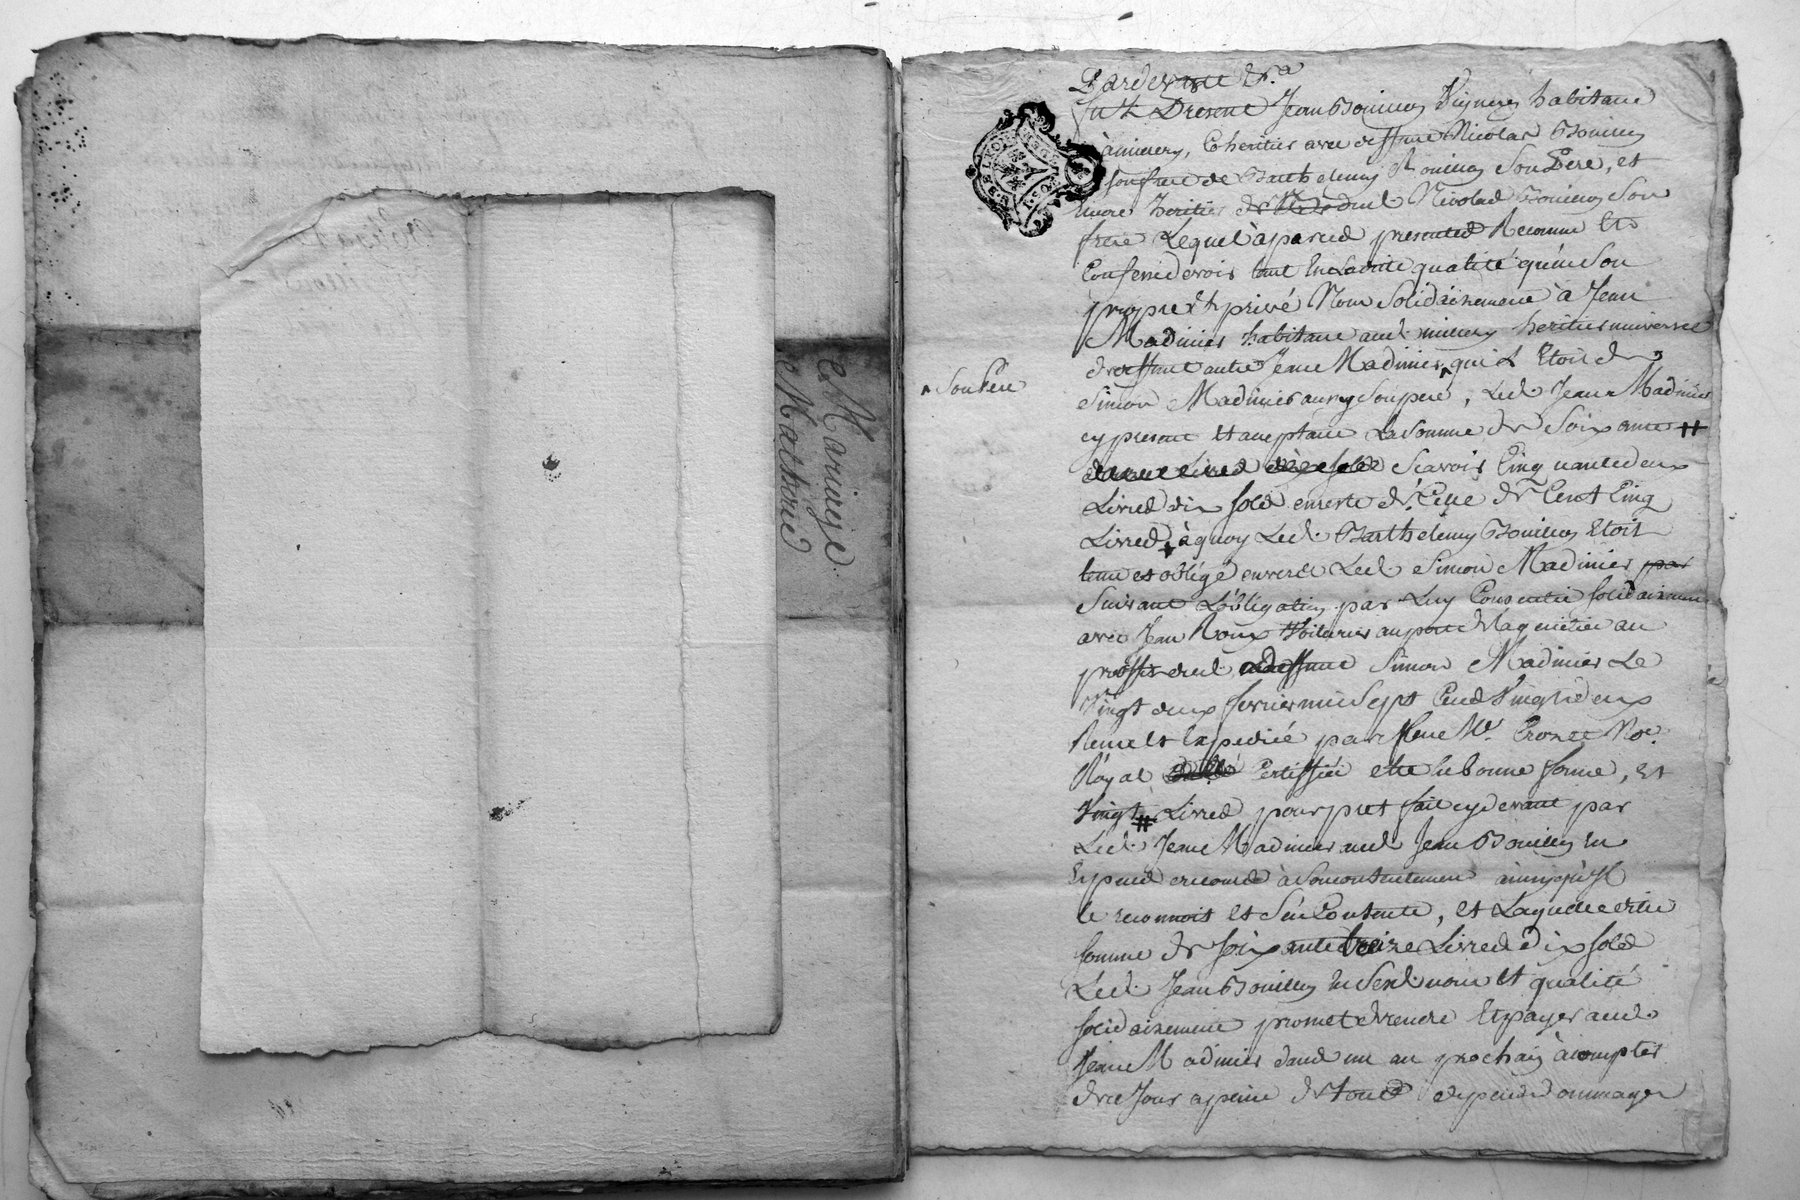 et Mariage
et Mathieu
Pardevant &.a
fut Present Jean Bouillon Vigneron habitant
à Millery, Coheritier avec deffunt Nicolas Bouillon
son frere de Barthelemy Bouillon Son Pere, et
Encore heritier dud. Nicolas Bouillon Son
frere Lequel a presentes Reconnu Et
Confessé devoir tant En Ladite qualité qu'en Son
propre Et privé Nom Solidairement à Jean
Madinier habitant aud. millery heritier universel
de deffunt autre Jean Madinier, qui L'Etoit de
^ Son Pere
Simon Madinier aussy Son pere, Led. Jean Madinier
cy present Et aceptant La Somme de Soixante #
Scavoir Cinquante deux
Livres dix sols en reste de Celle de Cent Cinq
Livres à quoy Led. Barthelemy Bouillon Etoit
tenu et obligé envers Led. Simon Madinier par
Suivant L'obligation par Luy Consentie solidairement
avec Jean Roux Voiturier au port de au
proffit dud. Simon Madinier Le
Vingt deux fevrier mil Sept Cent Vingt deux
Receue Et Expediée par feu M.e Noe.
Royal Certiffiée etre en bonne forme, Et
Vingt # Livres pour pret fait cy devant par
Led. Jean Madinier aud. Jean Bouillon En
Especes de cours à Son contentement ainsy qu'il
le reconnoit Et S'en Contente, Et Laquelle ditte
somme de soixante treize Livres dix sols
Led. Jean Bouillon En Sesd. nom Et qualité
solidairement promet de rendre Et payer aud.
Jean Madinier dans un an prochain à compter
de ce Jour a peine de tous depens dommages